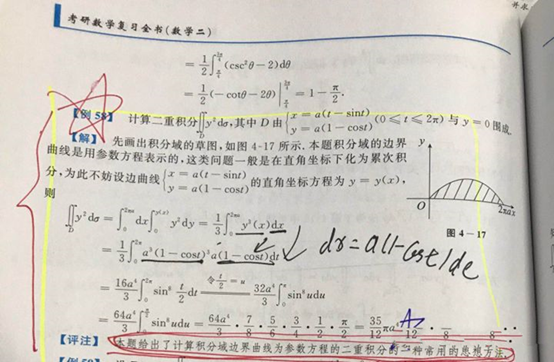 考研数学复习全书(数学二)
= 1/2 ∫_{π/4}^{3π/4} (csc²θ − 2)dθ
= 1/2 (−cotθ − 2θ) |_{π/4}^{3π/4} = 1 − π/2.
【例58】 计算二重积分∬_D y²dσ,其中 D 由 { x = a(t − sint) y = a(1 − cost) (0 ≤ t ≤ 2π) 与 y = 0 围成.
【解】 先画出积分域的草图,如图 4-17 所示.本题积分域的边界
曲线是用参数方程表示的,这类问题一般是在直角坐标下化为累次积
分,为此不妨设边曲线 { x = a(t − sint) y = a(1 − cost) 的直角坐标方程为 y = y(x),
则
y
O 2πa x
图 4-17
∬_D y²dσ = ∫_0^{2πa} dx ∫_0^{y(x)} y²dy = 1/3 ∫_0^{2πa} y³(x)dx
= 1/3 ∫_0^{2π} a³(1 − cost)³ a(1 − cost)dt
dx = a(1-cost)dt
= 16a⁴/3 ∫_0^{2π} sin⁸ t/2 dt 令 t/2 = u = 32a⁴/3 ∫_0^π sin⁸udu
= 64a⁴/3 ∫_0^{π/2} sin⁸udu = 64a⁴/3 · 7/8 · 5/6 · 3/4 · 1/2 · π/2 = 35/12 πa⁴
【评注】 本题给出了计算积分域边界曲线为参数方程的二重积分的一种常用的思想方法.